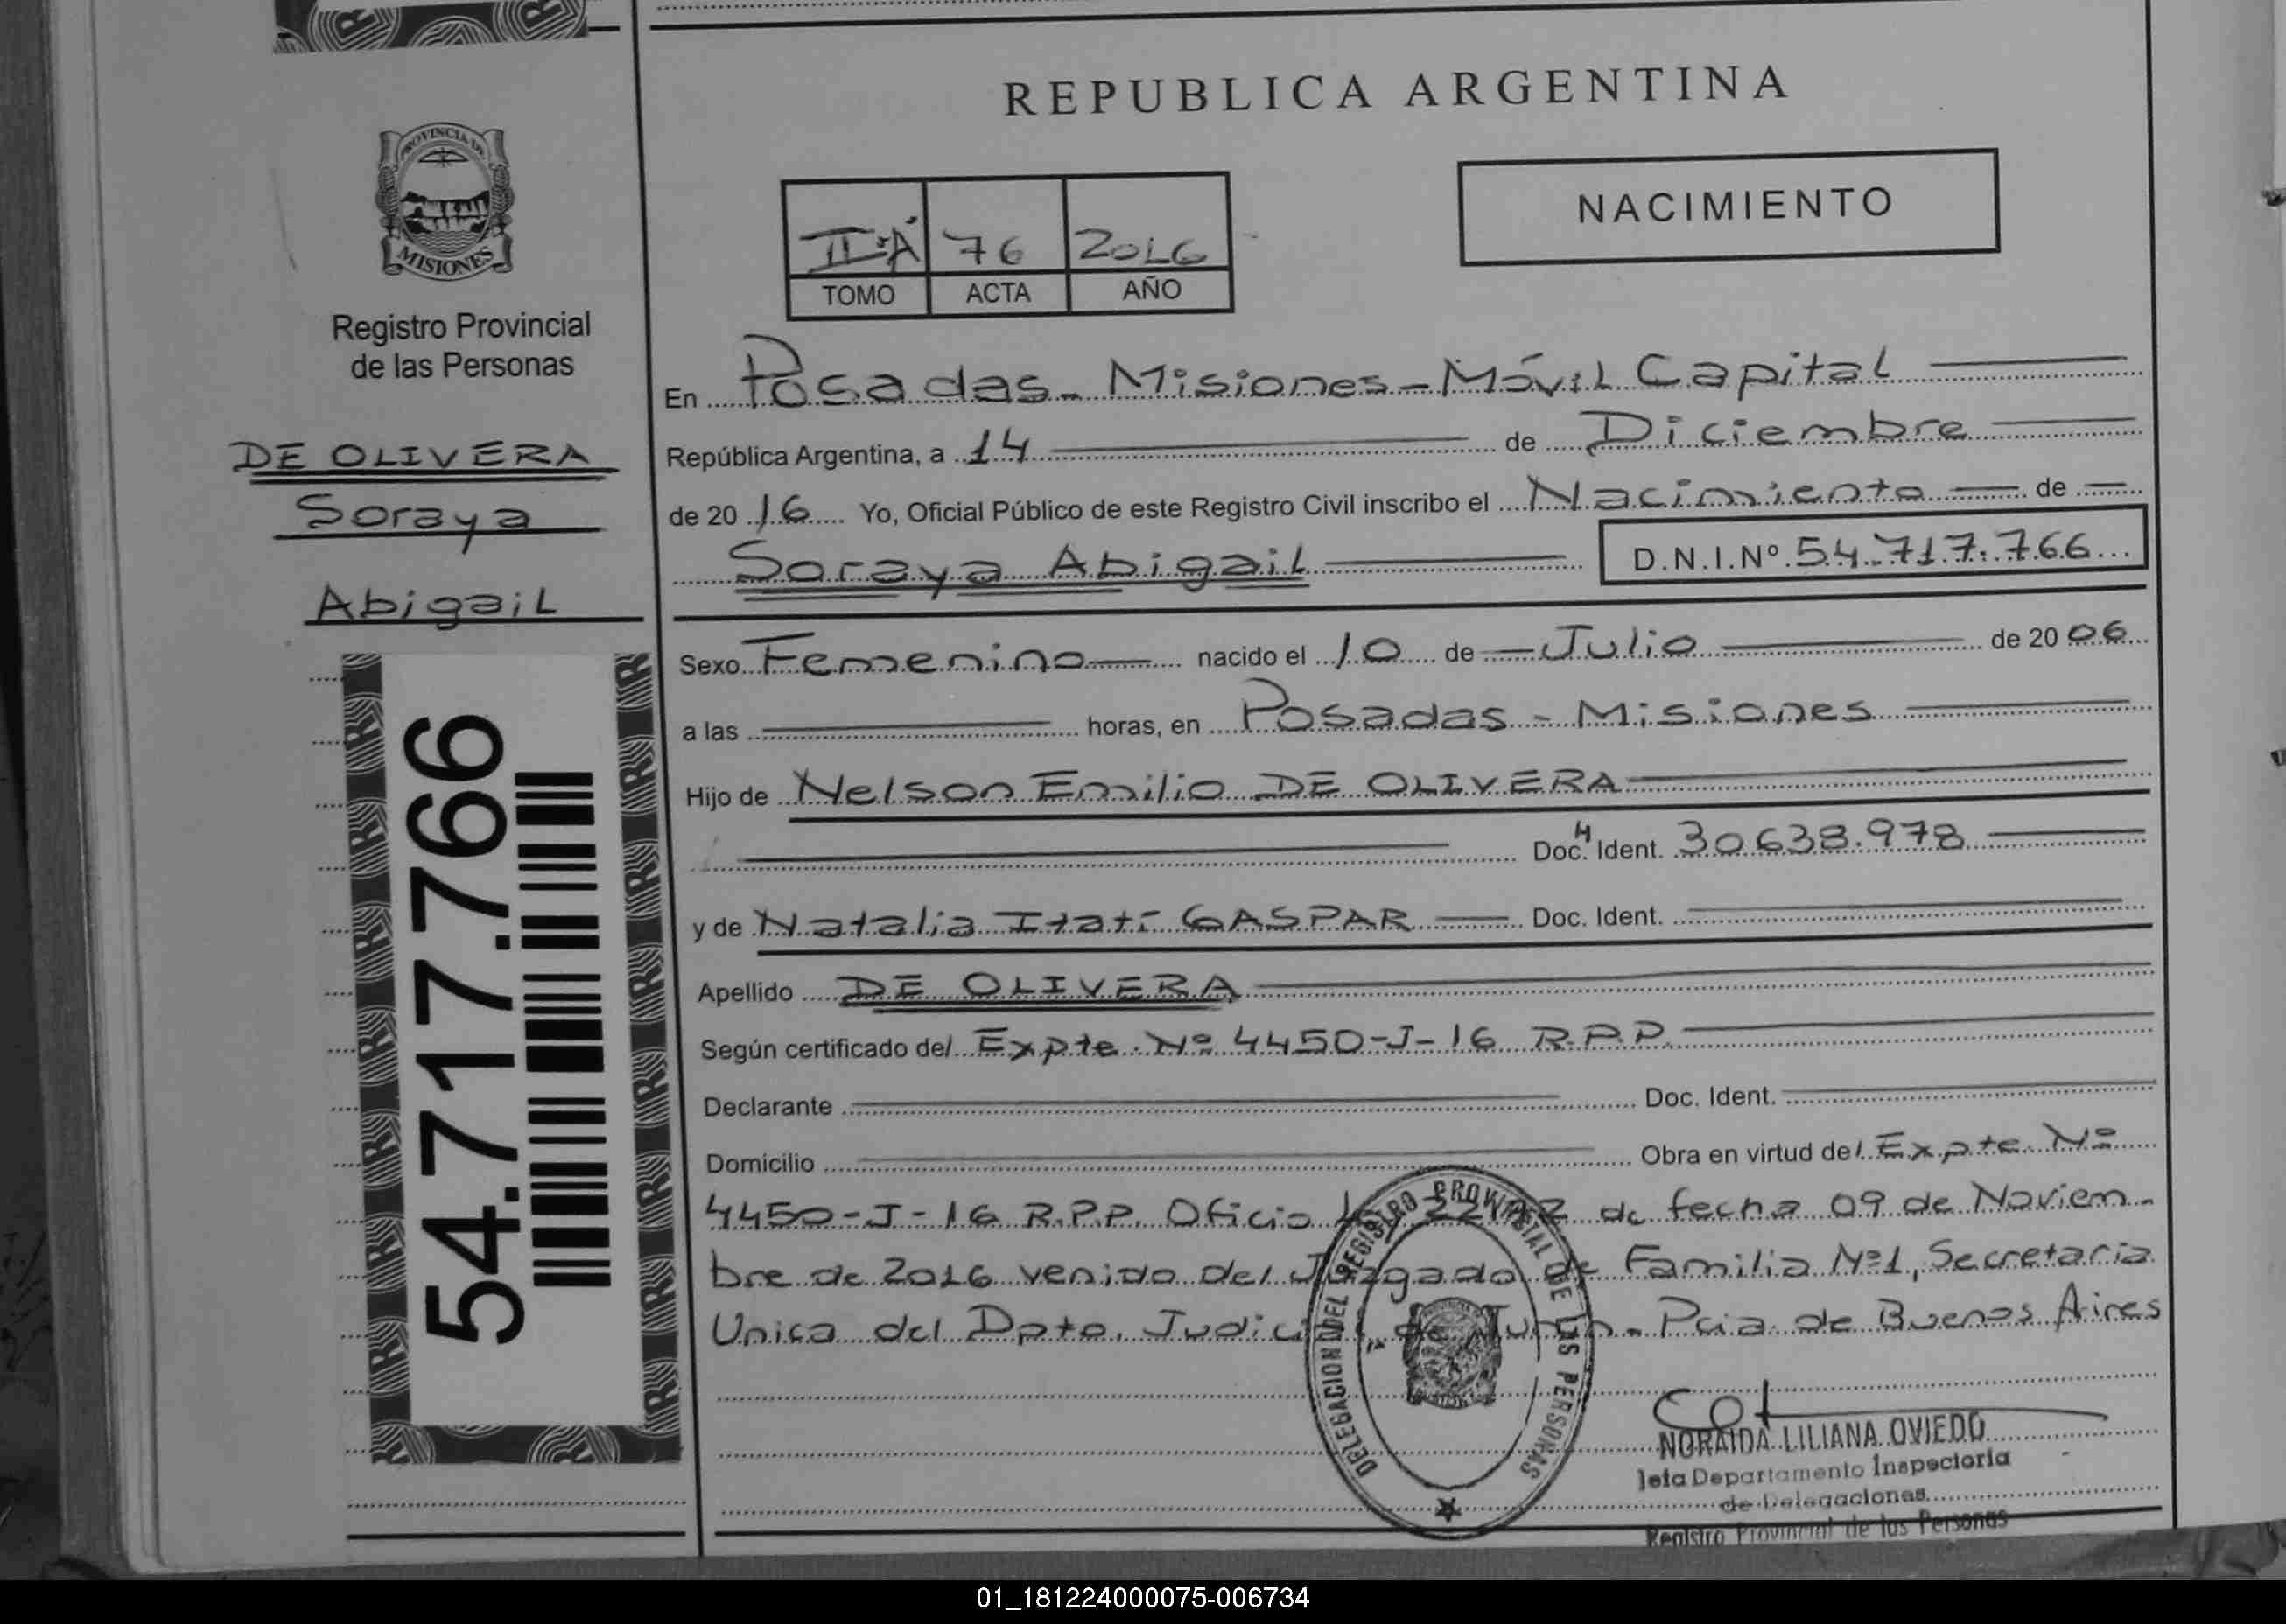 REPUBLICA ARGENTINA
PROVINCIA DE
MISIONES
Registro Provincial
de las Personas
DE OLIVERA
Soraya
Abigail
54.717.766
II"A" 76 2016
TOMO ACTA AÑO
NACIMIENTO
En Posadas - Misiones - Móvil Capital
República Argentina, a 14 de Diciembre
de 2016 Yo, Oficial Público de este Registro Civil inscribo el Nacimiento de
Soraya Abigail D.N.I.Nº 54.717.766
Sexo Femenino nacido el 10 de Julio de 2006
a las horas, en Posadas - Misiones
Hijo de Nelson Emilio DE OLIVERA
Doc. Ident. 30638.978
y de Natalia Itatí GASPAR Doc. Ident.
Apellido DE OLIVERA
Según certificado del Expte. Nº 4450-J-16 R.P.P.
Declarante Doc. Ident.
Domicilio Obra en virtud del Expte. Nº
4450-J-16 R.P.P. Oficio de fecha 09 de Noviem-
bre de 2016 venido del Juzgado de Familia Nº1, Secretaria
Unica del Dpto. Judicial de Junín - Pcia de Buenos Aires
DELEGACION DEL REGISTRO PROVINCIAL DE LAS PERSONAS
NORAIDA LILIANA OVIEDO
Jefa Departamento Inspectoria
de Delegaciones
Registro Provincial de las Personas
01_181224000075-006734